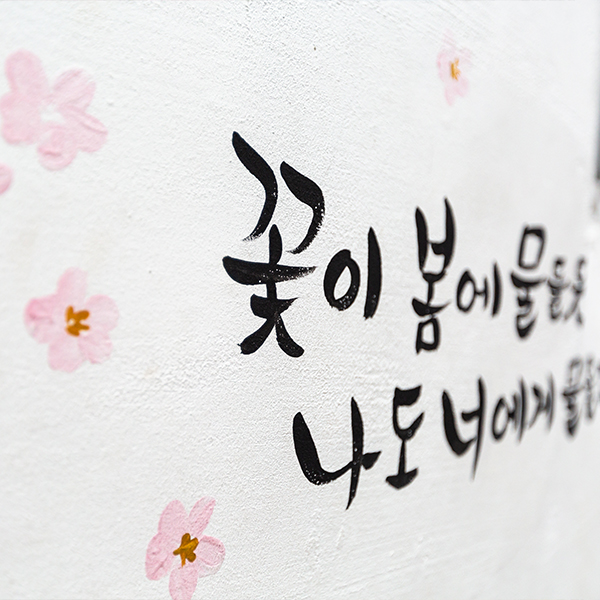 꽃이 봄에 물들듯
나도 너에게